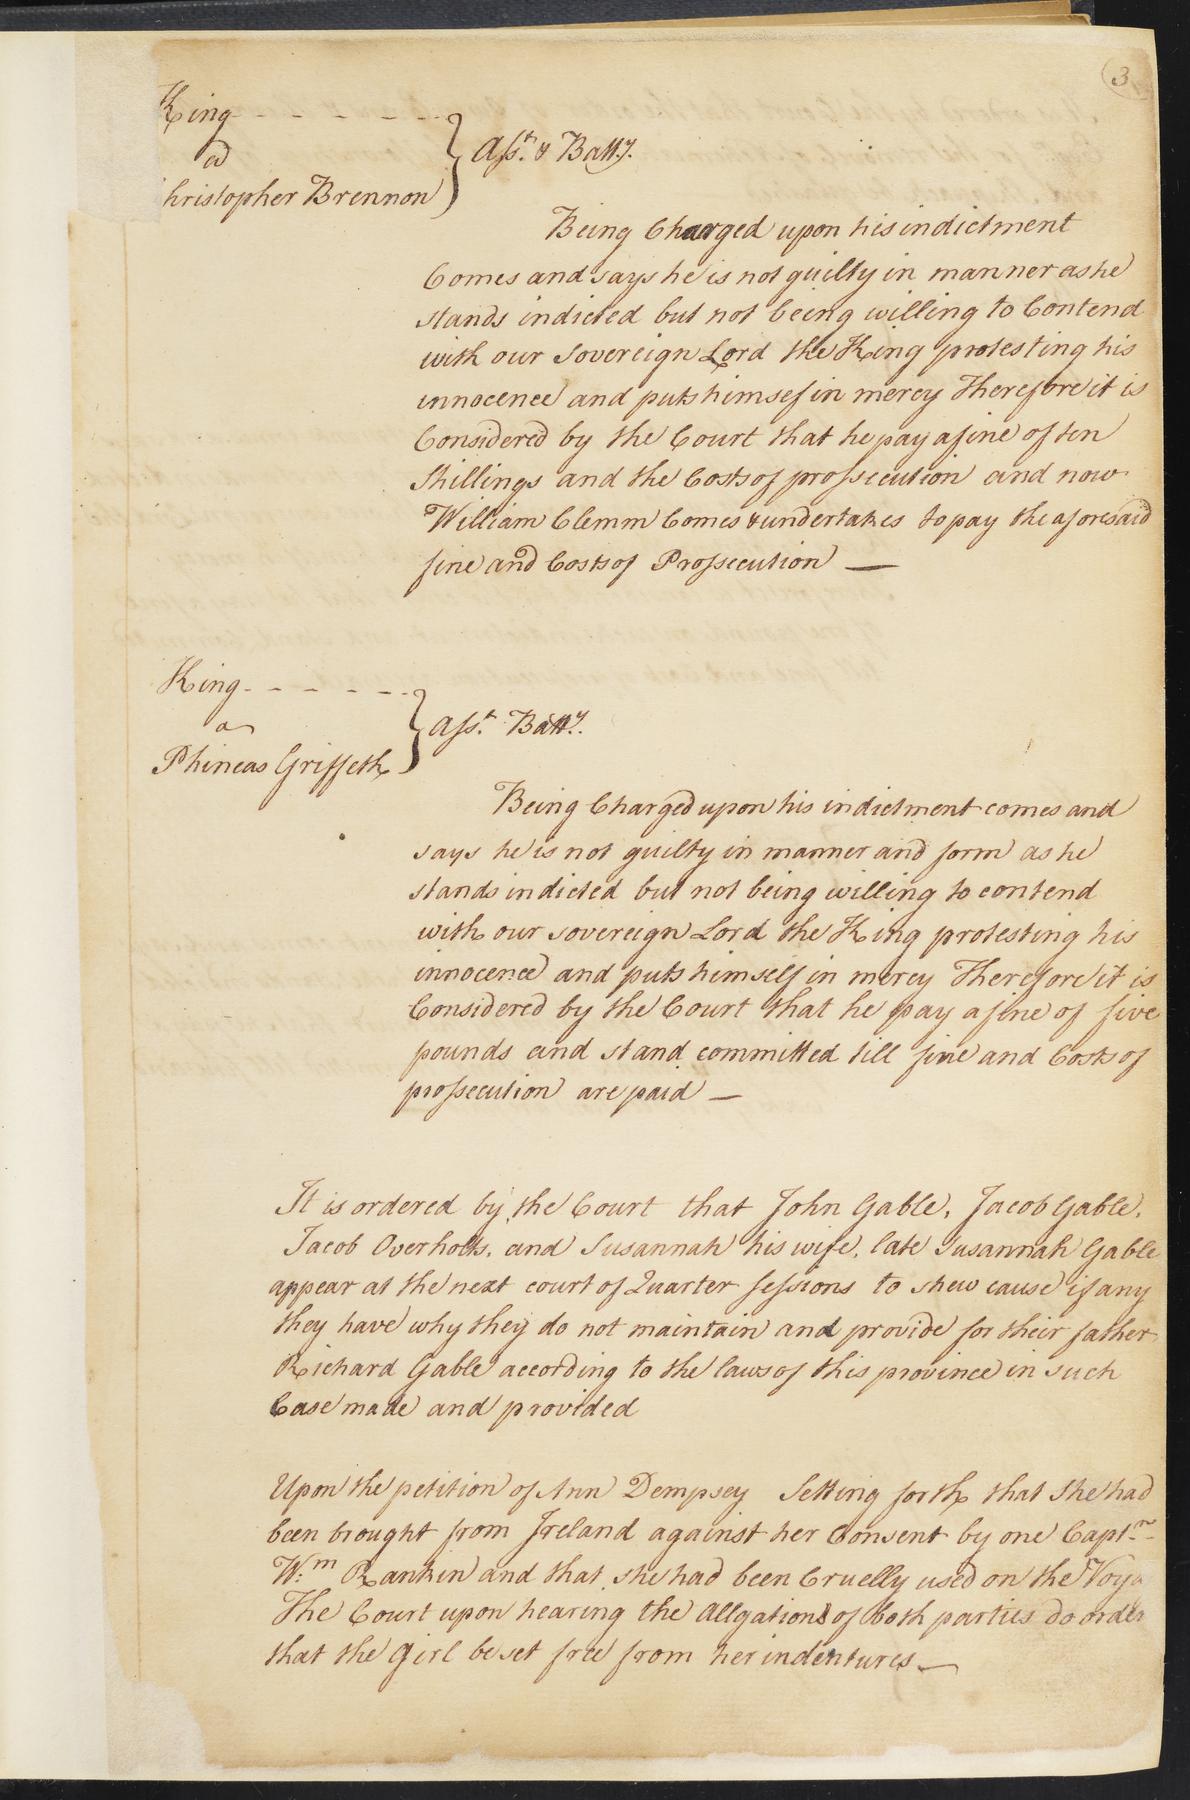 3
King - - - - - -
a
hristopher Brennon } Asst. & Batty.
Being Charged upon his indictment
Comes and says he is not guilty in manner as he
stands indicted but not being willing to Contend
with our Sovereign Lord the King protesting his
innocence and puts himsef in mercy Therefore it is
Considered by the Court that he pay a fine of ten
Shillings and the Costs of prossecution and now
William Clemm Comes & undertakes to pay the aforesaid
fine and Costs of Prossecution —
King - - - - - -
a
Phineas Griffeth } Asst. Batty.
Being Charged upon his indictment comes and
says he is not guilty in manner and form as he
stands indicted but not being willing to contend
with our sovereign Lord the King protesting his
innocence and puts himself in mercy Therefore it is
Considered by the Court that he pay a fine of five
pounds and stand committed till fine and Costs of
prossecution are paid —
It is ordered by the Court that John Gable, Jacob Gable,
Jacob Overholts, and Susannah his wife, late Susannah Gable
appear at the next court of Quarter sessions to shew cause if any
they have why they do not maintain and provide for their father
Richard Gable according to the laws of this province in such
Case made and provided
Upon the petition of Ann Dempsey Setting forth that She had
been brought from Ireland against her Consent by one Captn
Wm Rankin and that she had been Cruelly used on the Voya
The Court upon hearing the Allgations of both parties do order
that the Girl be set free from her indentures —